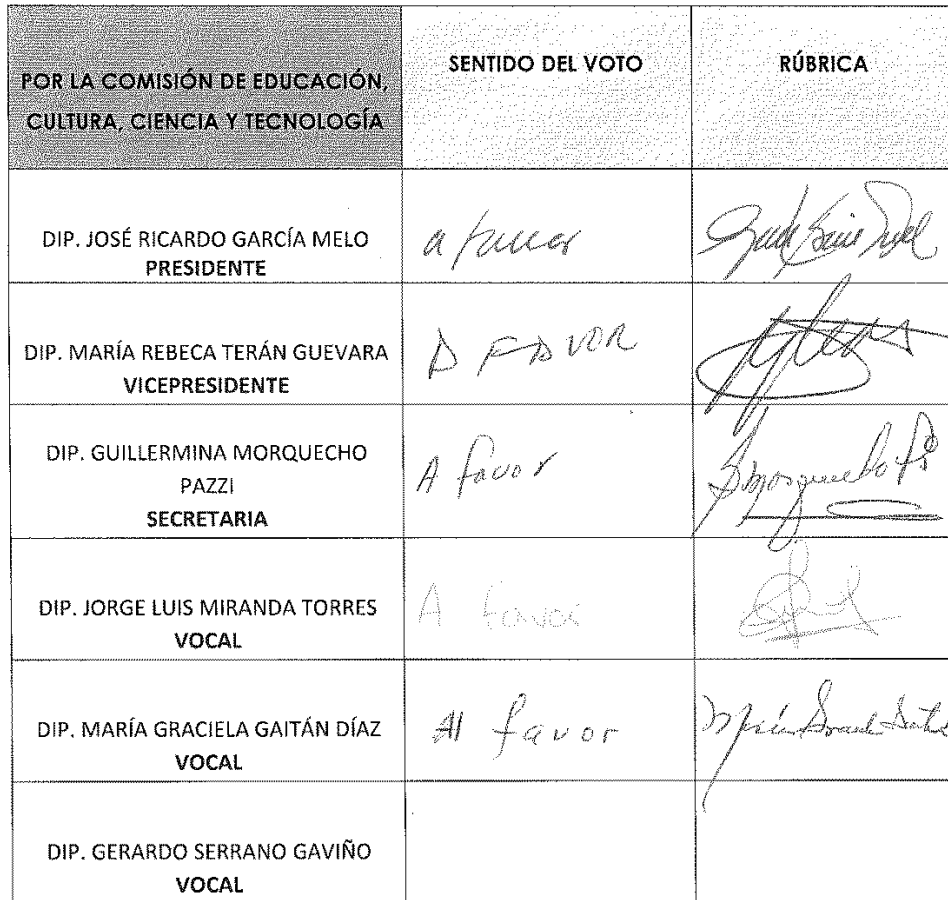 POR LA COMISIÓN DE EDUCACIÓN,
CULTURA, CIENCIA Y TECNOLOGÍA
SENTIDO DEL VOTO
RÚBRICA
DIP. JOSÉ RICARDO GARCÍA MELO
PRESIDENTE
a favor
DIP. MARÍA REBECA TERÁN GUEVARA
VICEPRESIDENTE
A FAVOR
DIP. GUILLERMINA MORQUECHO
PAZZI
SECRETARIA
A favor
DIP. JORGE LUIS MIRANDA TORRES
VOCAL
A favor
DIP. MARÍA GRACIELA GAITÁN DÍAZ
VOCAL
A favor
DIP. GERARDO SERRANO GAVIÑO
VOCAL